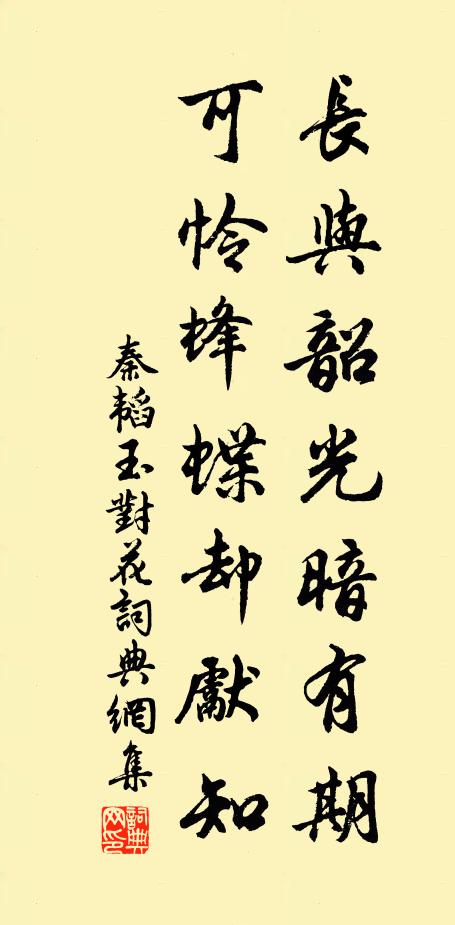 長與韶光暗有期
可怜蜂蝶却獻知
秦韜玉對花詞典網集
詞典
网印